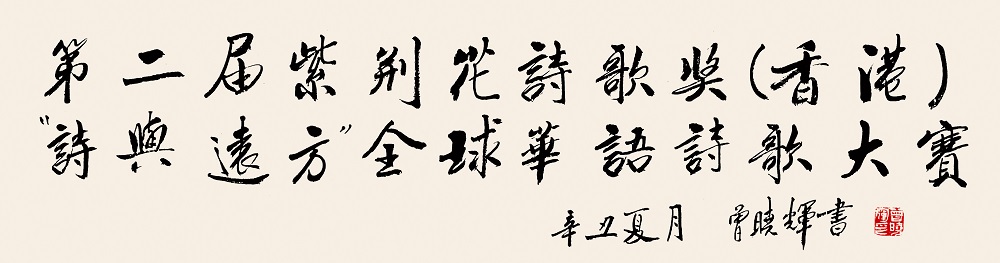 第二届紫荆花詩歌奖(香港)
"詩與遠方"全球華語詩歌大賽
辛丑夏月 曾曉輝書